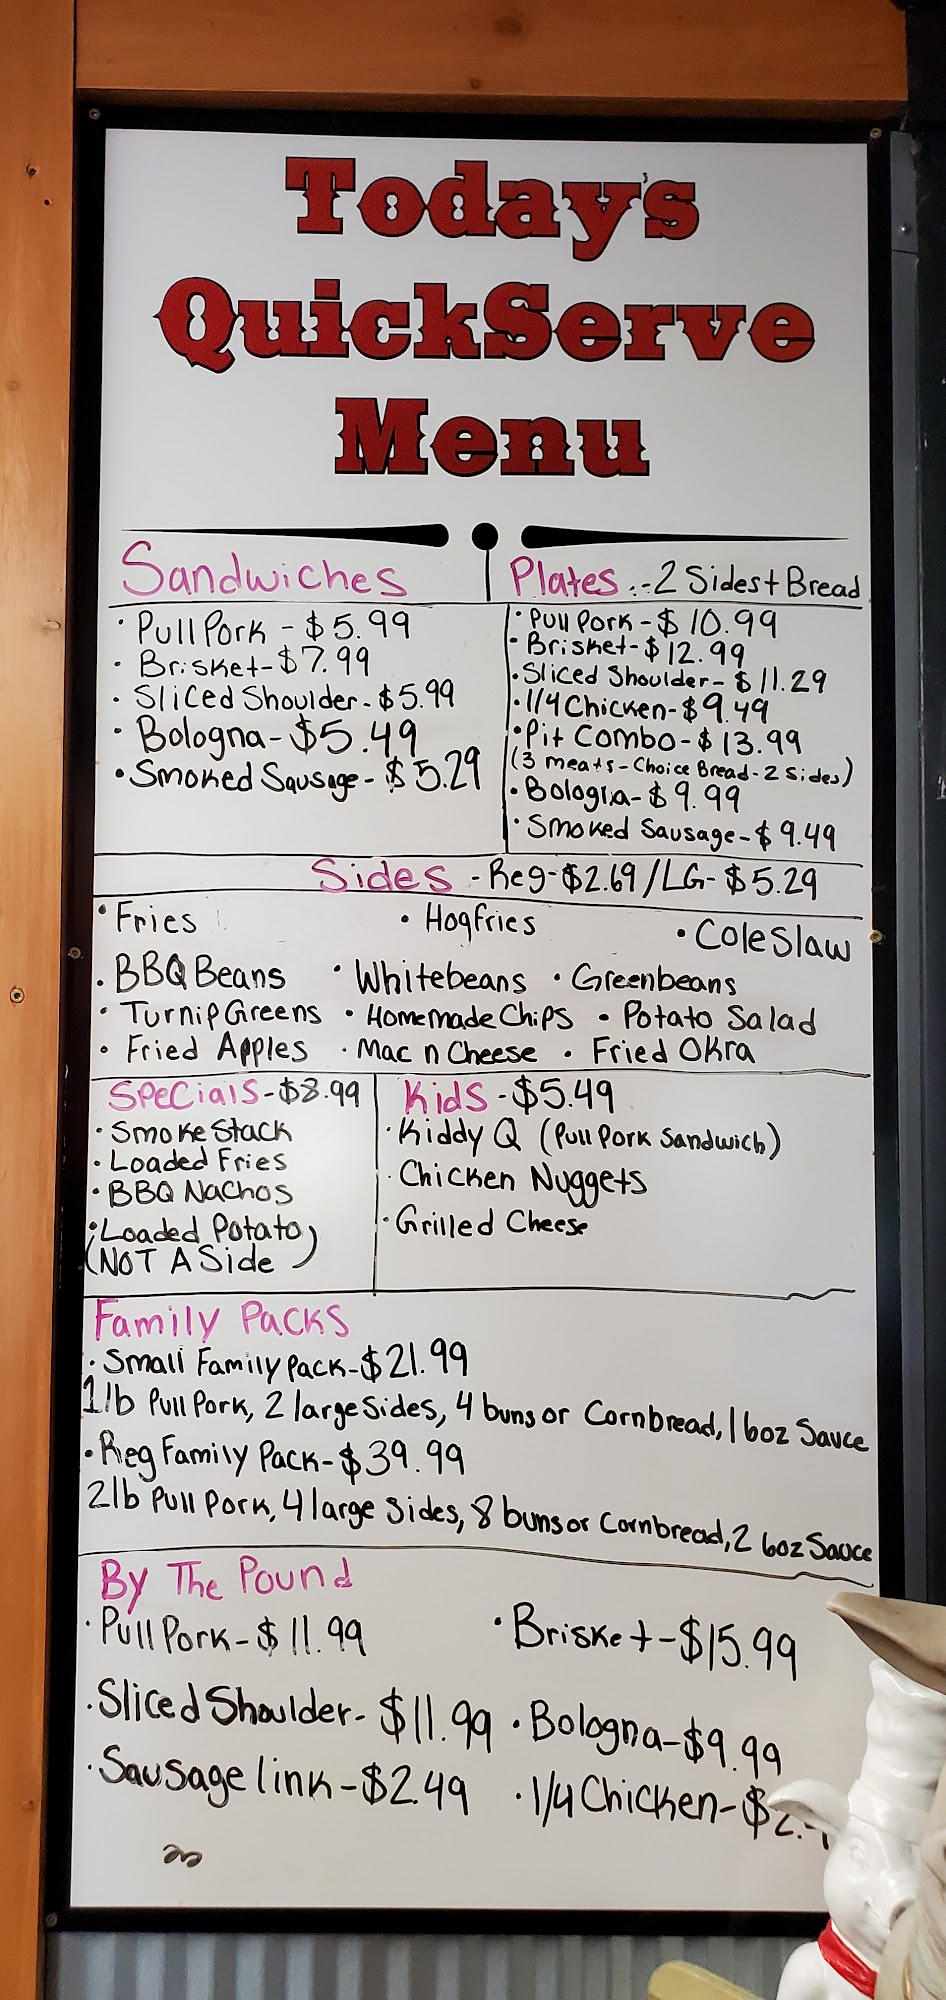 Today's
QuickServe
Menu
Sandwiches
· Pull Pork - $5.99
· Brisket - $7.99
· Sliced Shoulder - $5.99
· Bologna - $5.49
· Smoked Sausage - $5.29
Plates :- 2 Sides + Bread
· Pull Pork - $10.99
· Brisket - $12.99
· Sliced Shoulder - $11.29
· 1/4 Chicken - $9.49
· Pit Combo - $13.99
(3 meats - Choice Bread - 2 sides)
· Bologna - $9.99
· Smoked Sausage - $9.49
Sides - Reg - $2.69 / LG - $5.29
· Fries · Hogfries · Coleslaw
· BBQ Beans · Whitebeans · Greenbeans
· Turnip Greens · Homemade Chips · Potato Salad
· Fried Apples · Mac n Cheese · Fried Okra
Specials - $8.99
· Smoke Stack
· Loaded Fries
· BBQ Nachos
· Loaded Potato
(NOT A Side)
Kids - $5.49
· Kiddy Q (Pull Pork Sandwich)
· Chicken Nuggets
· Grilled Cheese
Family Packs
· Small Family Pack - $21.99
1lb Pull Pork, 2 large Sides, 4 buns or Cornbread, 1 6oz Sauce
· Reg Family Pack - $39.99
2lb Pull Pork, 4 large Sides, 8 buns or Cornbread, 2 6oz Sauce
By The Pound
· Pull Pork - $11.99 · Brisket - $15.99
· Sliced Shoulder - $11.99 · Bologna - $9.99
· Sausage link - $2.49 · 1/4 Chicken - $2.